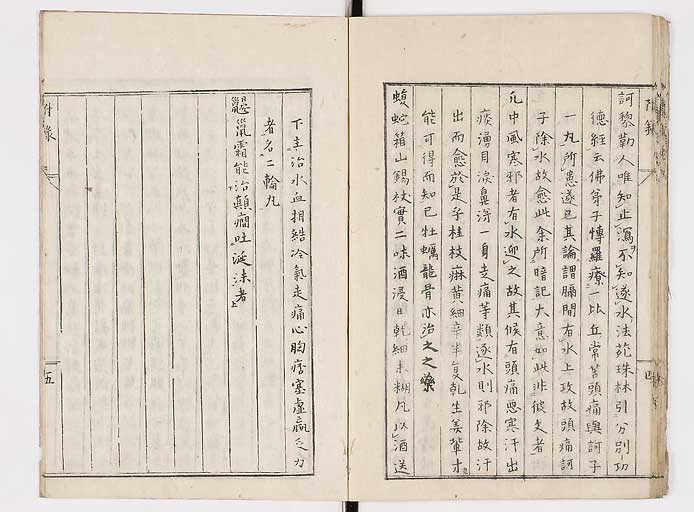 附錄
訶黎勒人唯知止瀉不知遂水法苑珠林引分別功
德經云佛弟子愽羅療一比丘常苦頭痛與訶子
一丸所患遂已其論謂膈間有水上攻故頭痛訶
子除水故愈此余所暗記大意如此非彼文者
凡中風寒邪者有水迎之故其候有頭痛惡寒汗出
痰湧目淚鼻涕一身走痛等類逐水則邪除故汗
出而愈於是乎桂枝麻黃細辛半夏乾生姜輩才
能可得而知已牡蠣龍骨亦治之之藥
蝮蛇箱山錫杖實二味酒浸日乾細末糊丸以酒送
下主治水血相結冷氣走痛心胸痞塞虛羸乏力
者名二輪丸
鼴鼠霜能治顛癇吐涎沫者
附錄
五